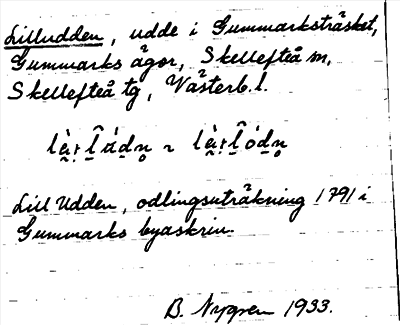 Lilludden, udde i Gummarksträsket,
Gummarks ägor, Skellefteå sn,
Skellefteå tg, Västerb. l.
Lill Udden, odlingsuträkning 1791 i
Gummarks byaskrin.
B. Nygren 1933.